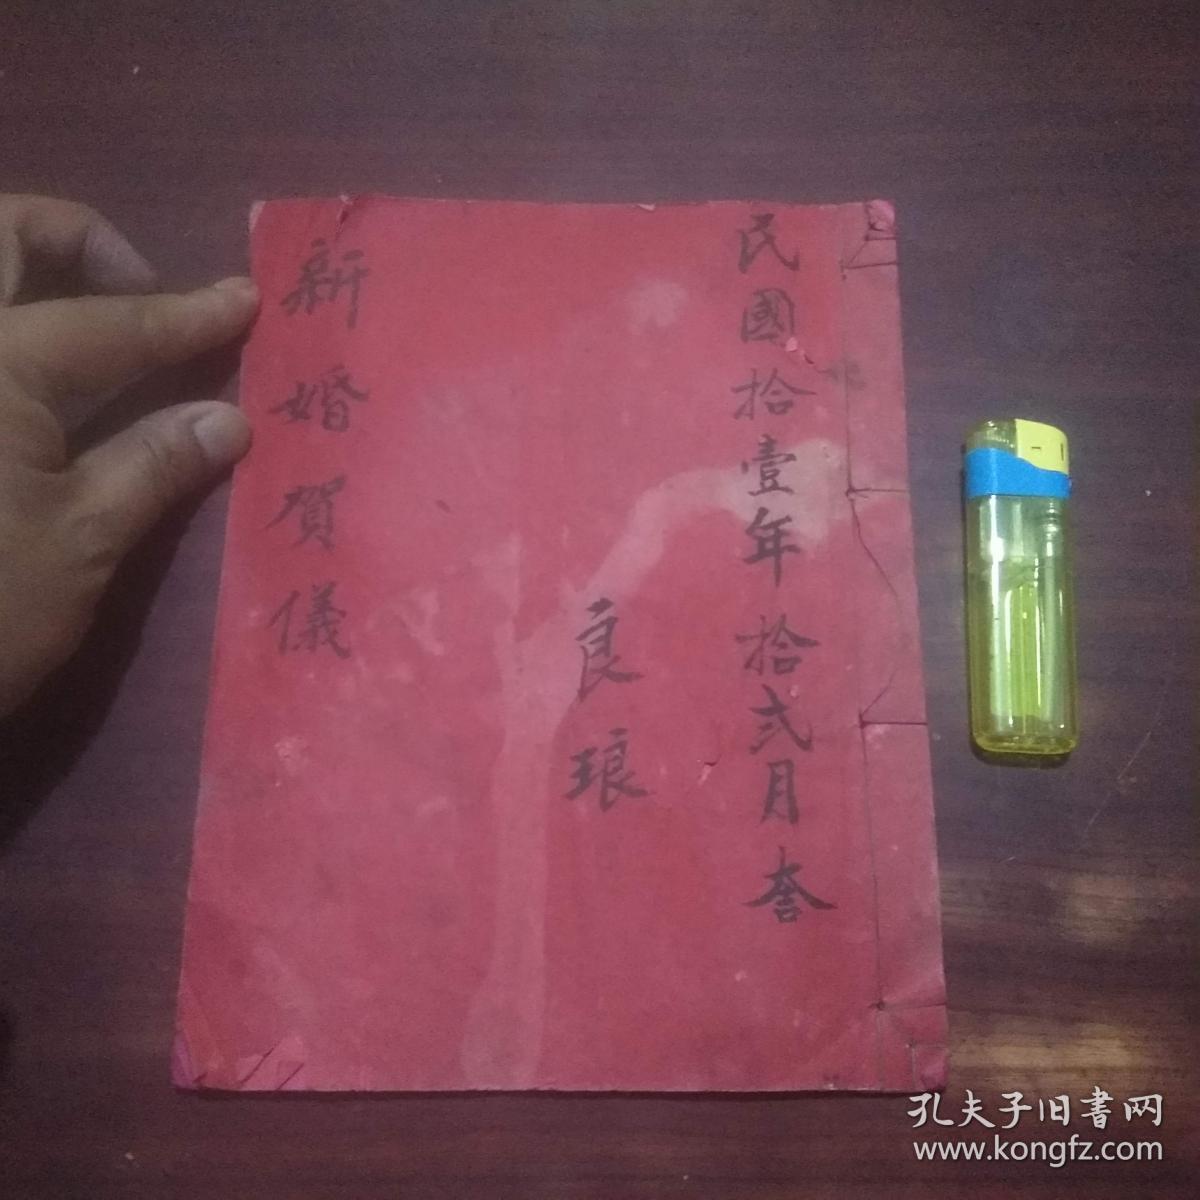 民國拾壹年拾弍月
良琅
新婚賀儀
孔夫子旧書网
www.kongfz.com